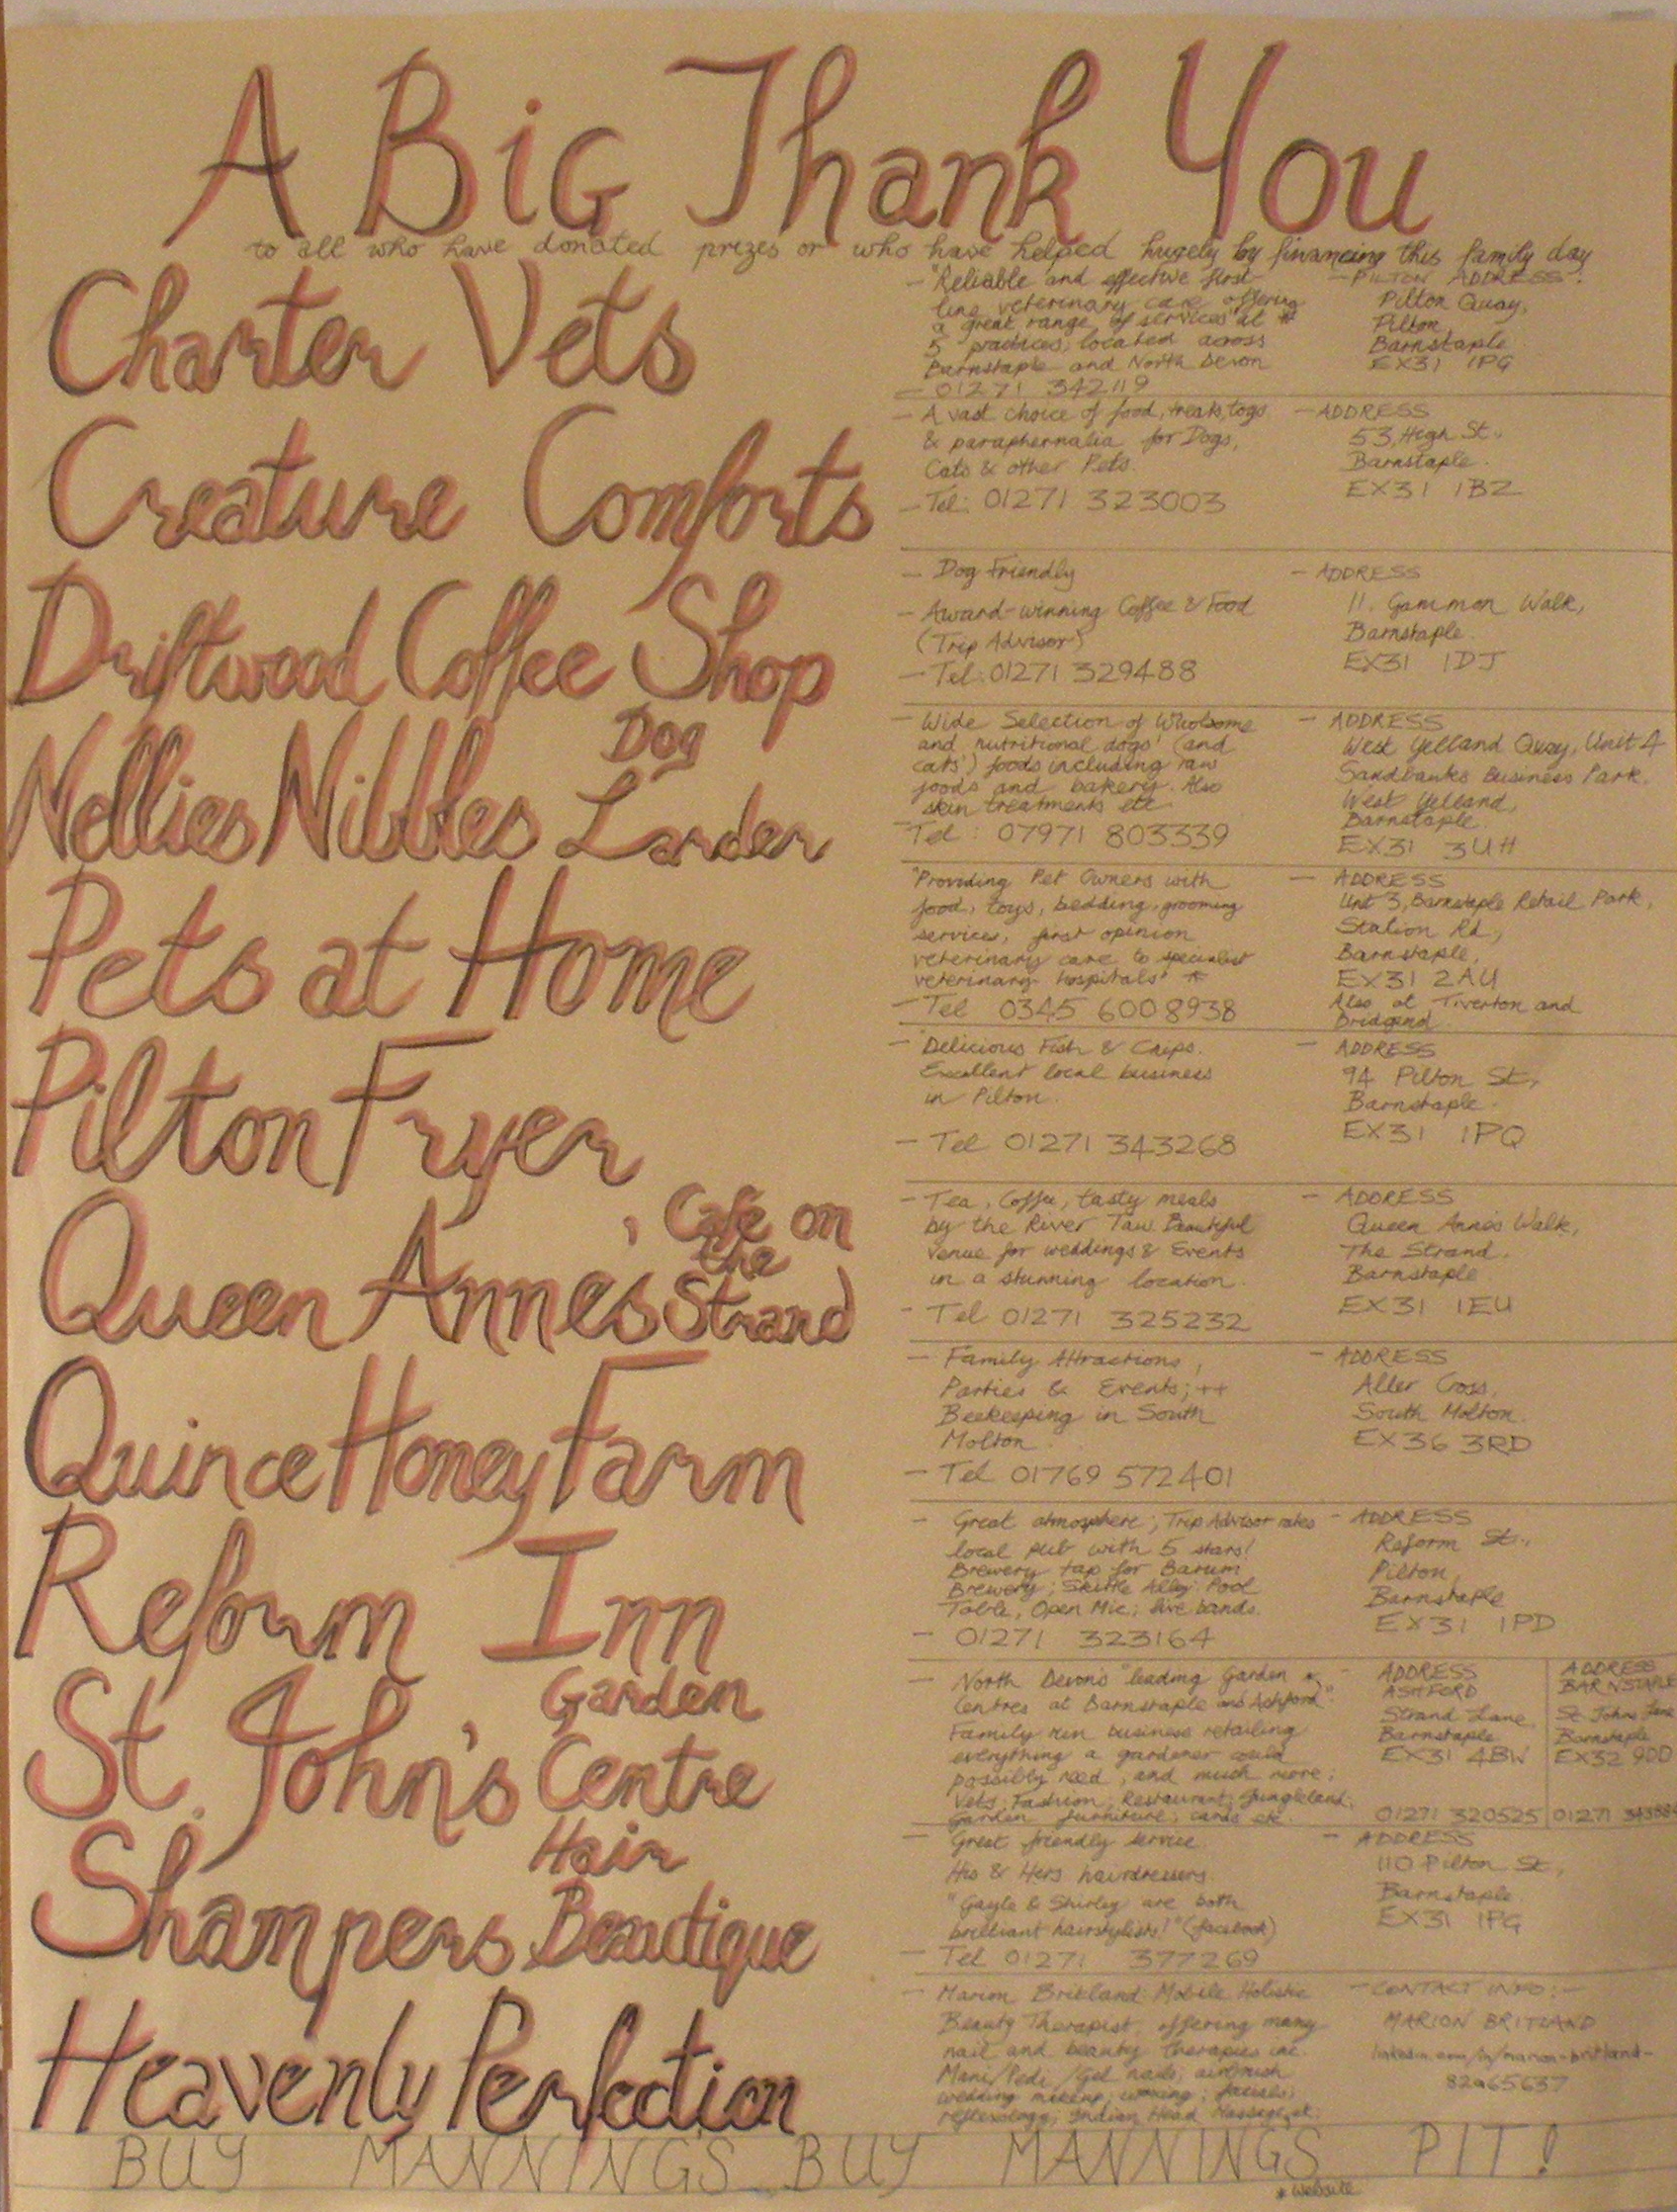 A BiG Thank You
to all who have donated prizes or who have helped hugely by financing this family day
Charter Vets
- "Reliable and effective first
line veterinary care offering
a great range of services" at *
5 practices, located across
Barnstaple and North Devon
- 01271 342119
- PILTON ADDRESS:
Pilton Quay,
Pilton,
Barnstaple
EX31 1PG
Creature Comforts
- A vast choice of food, treats, togs
& paraphernalia for Dogs,
Cats & other Pets.
- Tel: 01271 323003
- ADDRESS
53, High St.,
Barnstaple.
EX31 1BZ
Driftwood Coffee Shop
- Dog Friendly
- Award-winning Coffee & Food
(Trip Advisor)
- Tel: 01271 329488
- ADDRESS
11. Gammon Walk,
Barnstaple.
EX31 1DJ
Nellies Nibbles Dog Larder
- Wide Selection of Wholsome
and nutritional dogs' (and
cats') foods including raw
foods and bakery. Also
skin treatments etc
Tel: 07971 803339
- ADDRESS
West Yelland Quay, Unit 4
Sandbanks Business Park.
West Yelland,
Barnstaple.
EX31 3UH
Pets at Home
"Providing Pet Owners with
food, toys, bedding, grooming
services, first opinion
veterinary care to specialist
veterinary hospitals" *
- Tel 0345 600 8938
- ADDRESS
Unit 3, Barnstaple Retail Park,
Station Rd.,
Barnstaple,
EX31 2AU
Also at Tiverton and
Bridgend
Pilton Fryer
- Delicious Fish & Chips.
Excellent local business
in Pilton.
- Tel 01271 343268
- ADDRESS
94 Pilton St.,
Barnstaple.
EX31 1PQ
Queen Anne's, Cafe on the Strand
- Tea, Coffee, tasty meals
by the River Taw. Beautiful
venue for weddings & Events
in a stunning location.
- Tel 01271 325232
- ADDRESS
Queen Annes Walk,
The Strand.
Barnstaple
EX31 1EU
Quince Honey Farm
- Family Attractions,
Parties & Events; ++
Beekeeping in South
Molton.
- Tel 01769 572401
- ADDRESS
Aller Cross,
South Molton.
EX36 3RD
Reform Inn
- Great atmosphere; Trip Advisor rates
local pub with 5 stars!
Brewery tap for Barum
Brewery; Skittle Alley; Pool
Table, Open Mic; live bands.
- 01271 323164
- ADDRESS
Reform St.,
Pilton,
Barnstaple
EX31 1PD
St. John's Garden Centre
- North Devon's "leading Garden *
Centres at Barnstaple and Ashford".
Family run business retailing
everything a gardener could
possibly need, and much more;
Vets; Fashion; Restaurant; Jungleland;
Garden furniture; cards etc.
- ADDRESS
ASHFORD
Strand Lane
Barnstaple
EX31 4BW
01271 320525
ADDRESS
BARNSTAPLE
St Johns Lane
Barnstaple
EX32 9DD
01271
Shampers Hair Beautique
- Great friendly service.
His & Hers hairdressers.
"Gayle & Shirley are both
brilliant hairstylists!" (facebook)
- Tel 01271 377269
- ADDRESS
110 Pilton St,
Barnstaple.
EX31 1PG
Heavenly Perfection
- Marion Britland: Mobile Holistic
Beauty Therapist, offering many
nail and beauty therapies inc.
Mani/Pedi/Gel nails; airbrush
wedding makeup; waxing; facials;
reflexology; Indian Head Massage, et
- CONTACT INFO:-
MARION BRITLAND
linkedin.com/in/marion-britland-
82a65637
BUY MANNINGS BUY MANNINGS PIT!
* website